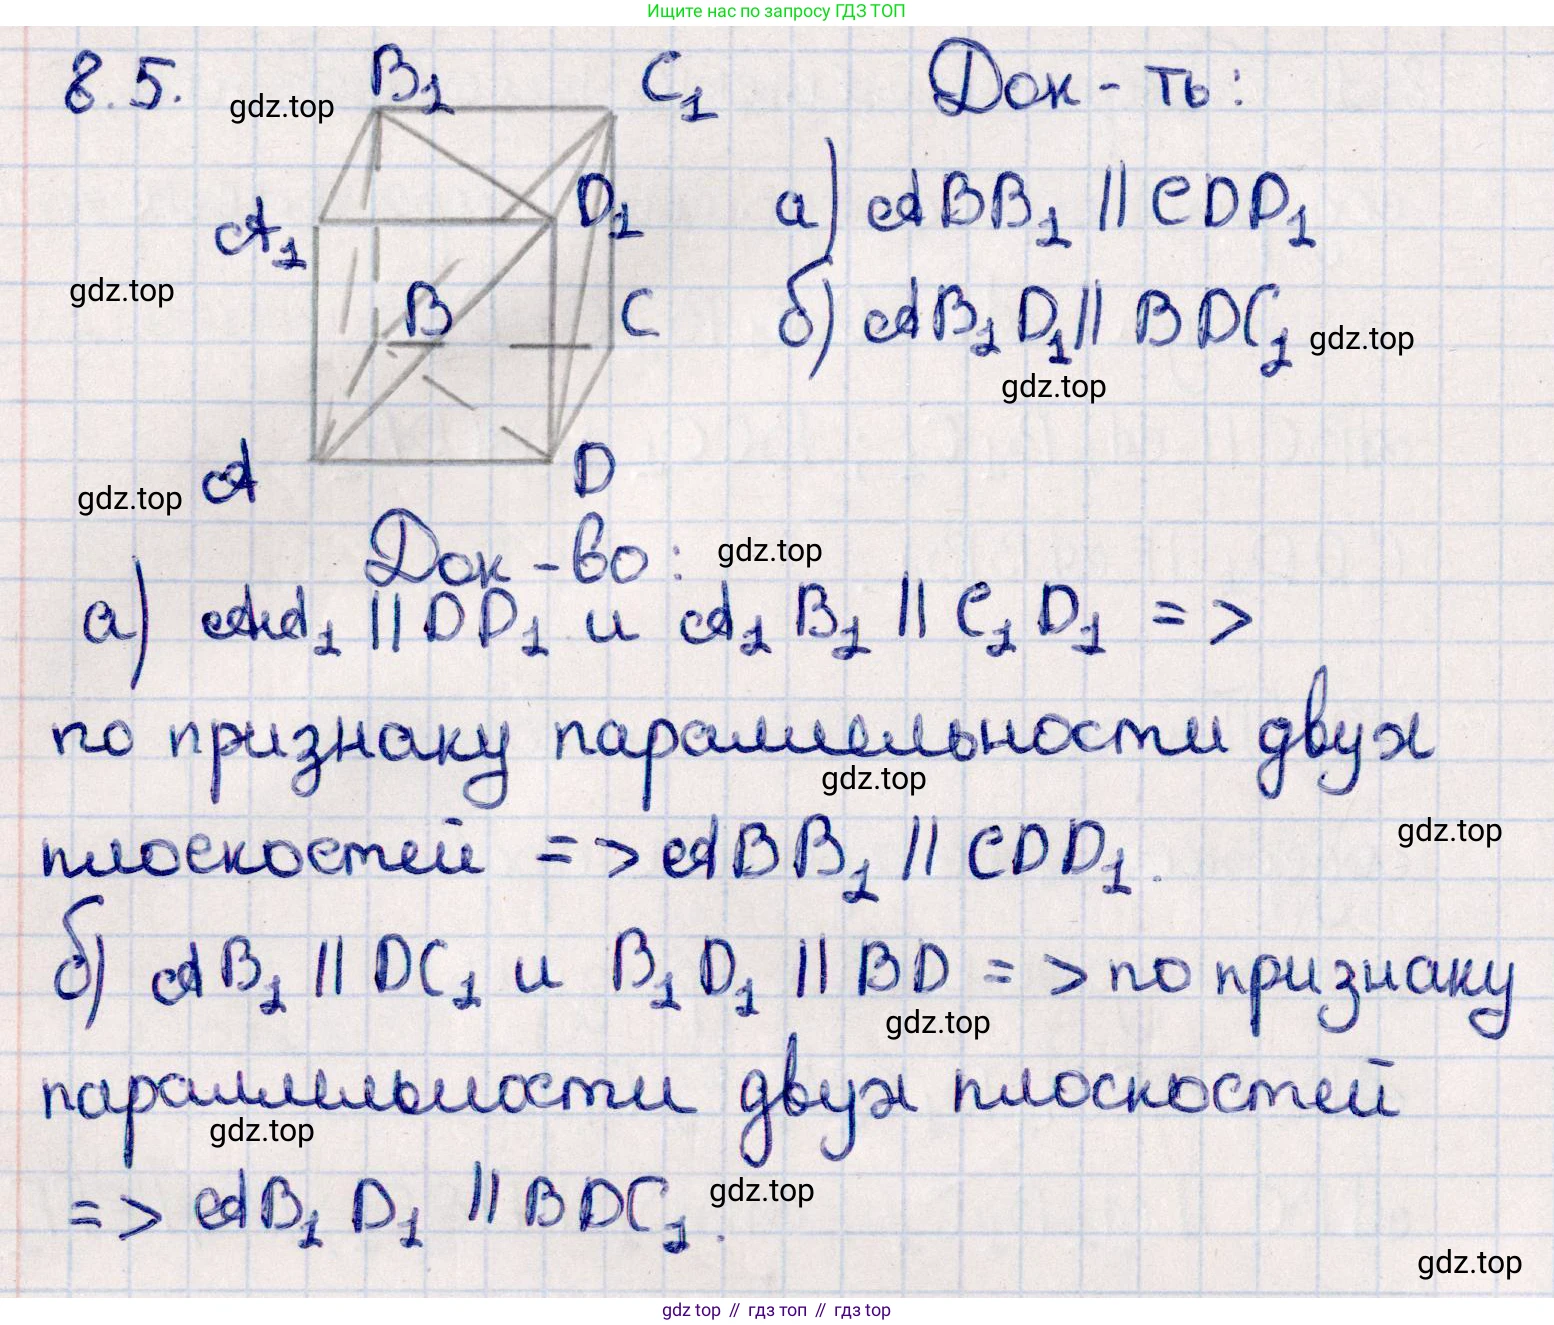 Ищите нас по запросу ГДЗ ТОП
8.5. B₁ C₁ Док-ть:
gdz.top
A₁ D₁ а) ABB₁ || CDD₁
gdz.top
B C б) AB₁D₁ || BDC₁ gdz.top
gdz.top
A D
gdz.top
Док-во: gdz.top
а) AA₁ || DD₁ и A₁B₁ || C₁D₁ =>
по признаку параллельности двух
gdz.top
плоскостей => ABB₁ || CDD₁.
gdz.top
б) AB₁ || DC₁ и B₁D₁ || BD => по признаку
gdz.top
параллельности двух плоскостей
gdz.top
=> AB₁D₁ || BDC₁.
gdz.top
gdz.top
gdz top // гдз топ // гдз top